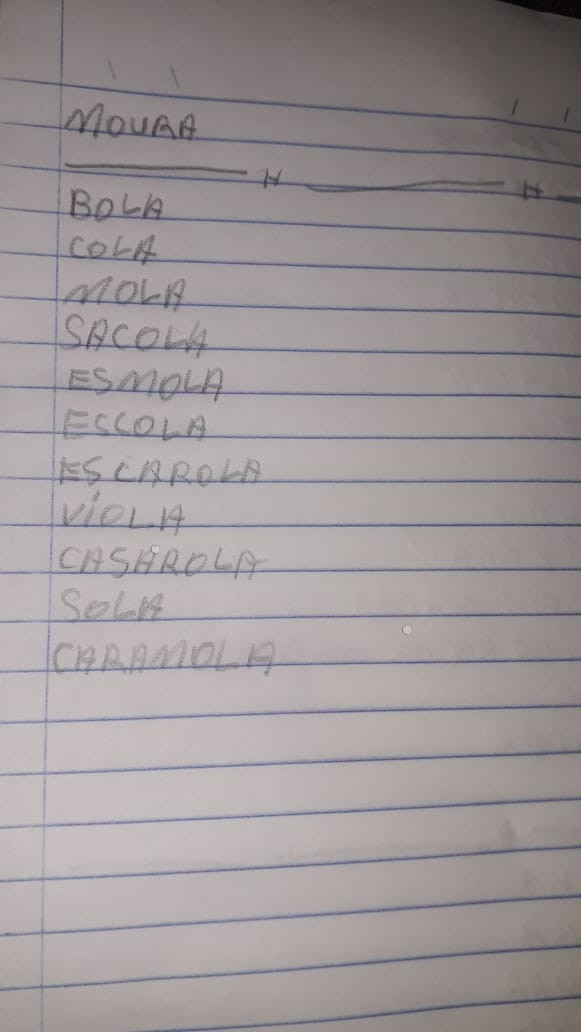 MOURA
BOLA
COLA
MOLA
SACOLA
ESMOLA
ESCOLA
ESCAROLA
VIOLA
CASAROLA
SOLA
CARAMOLA